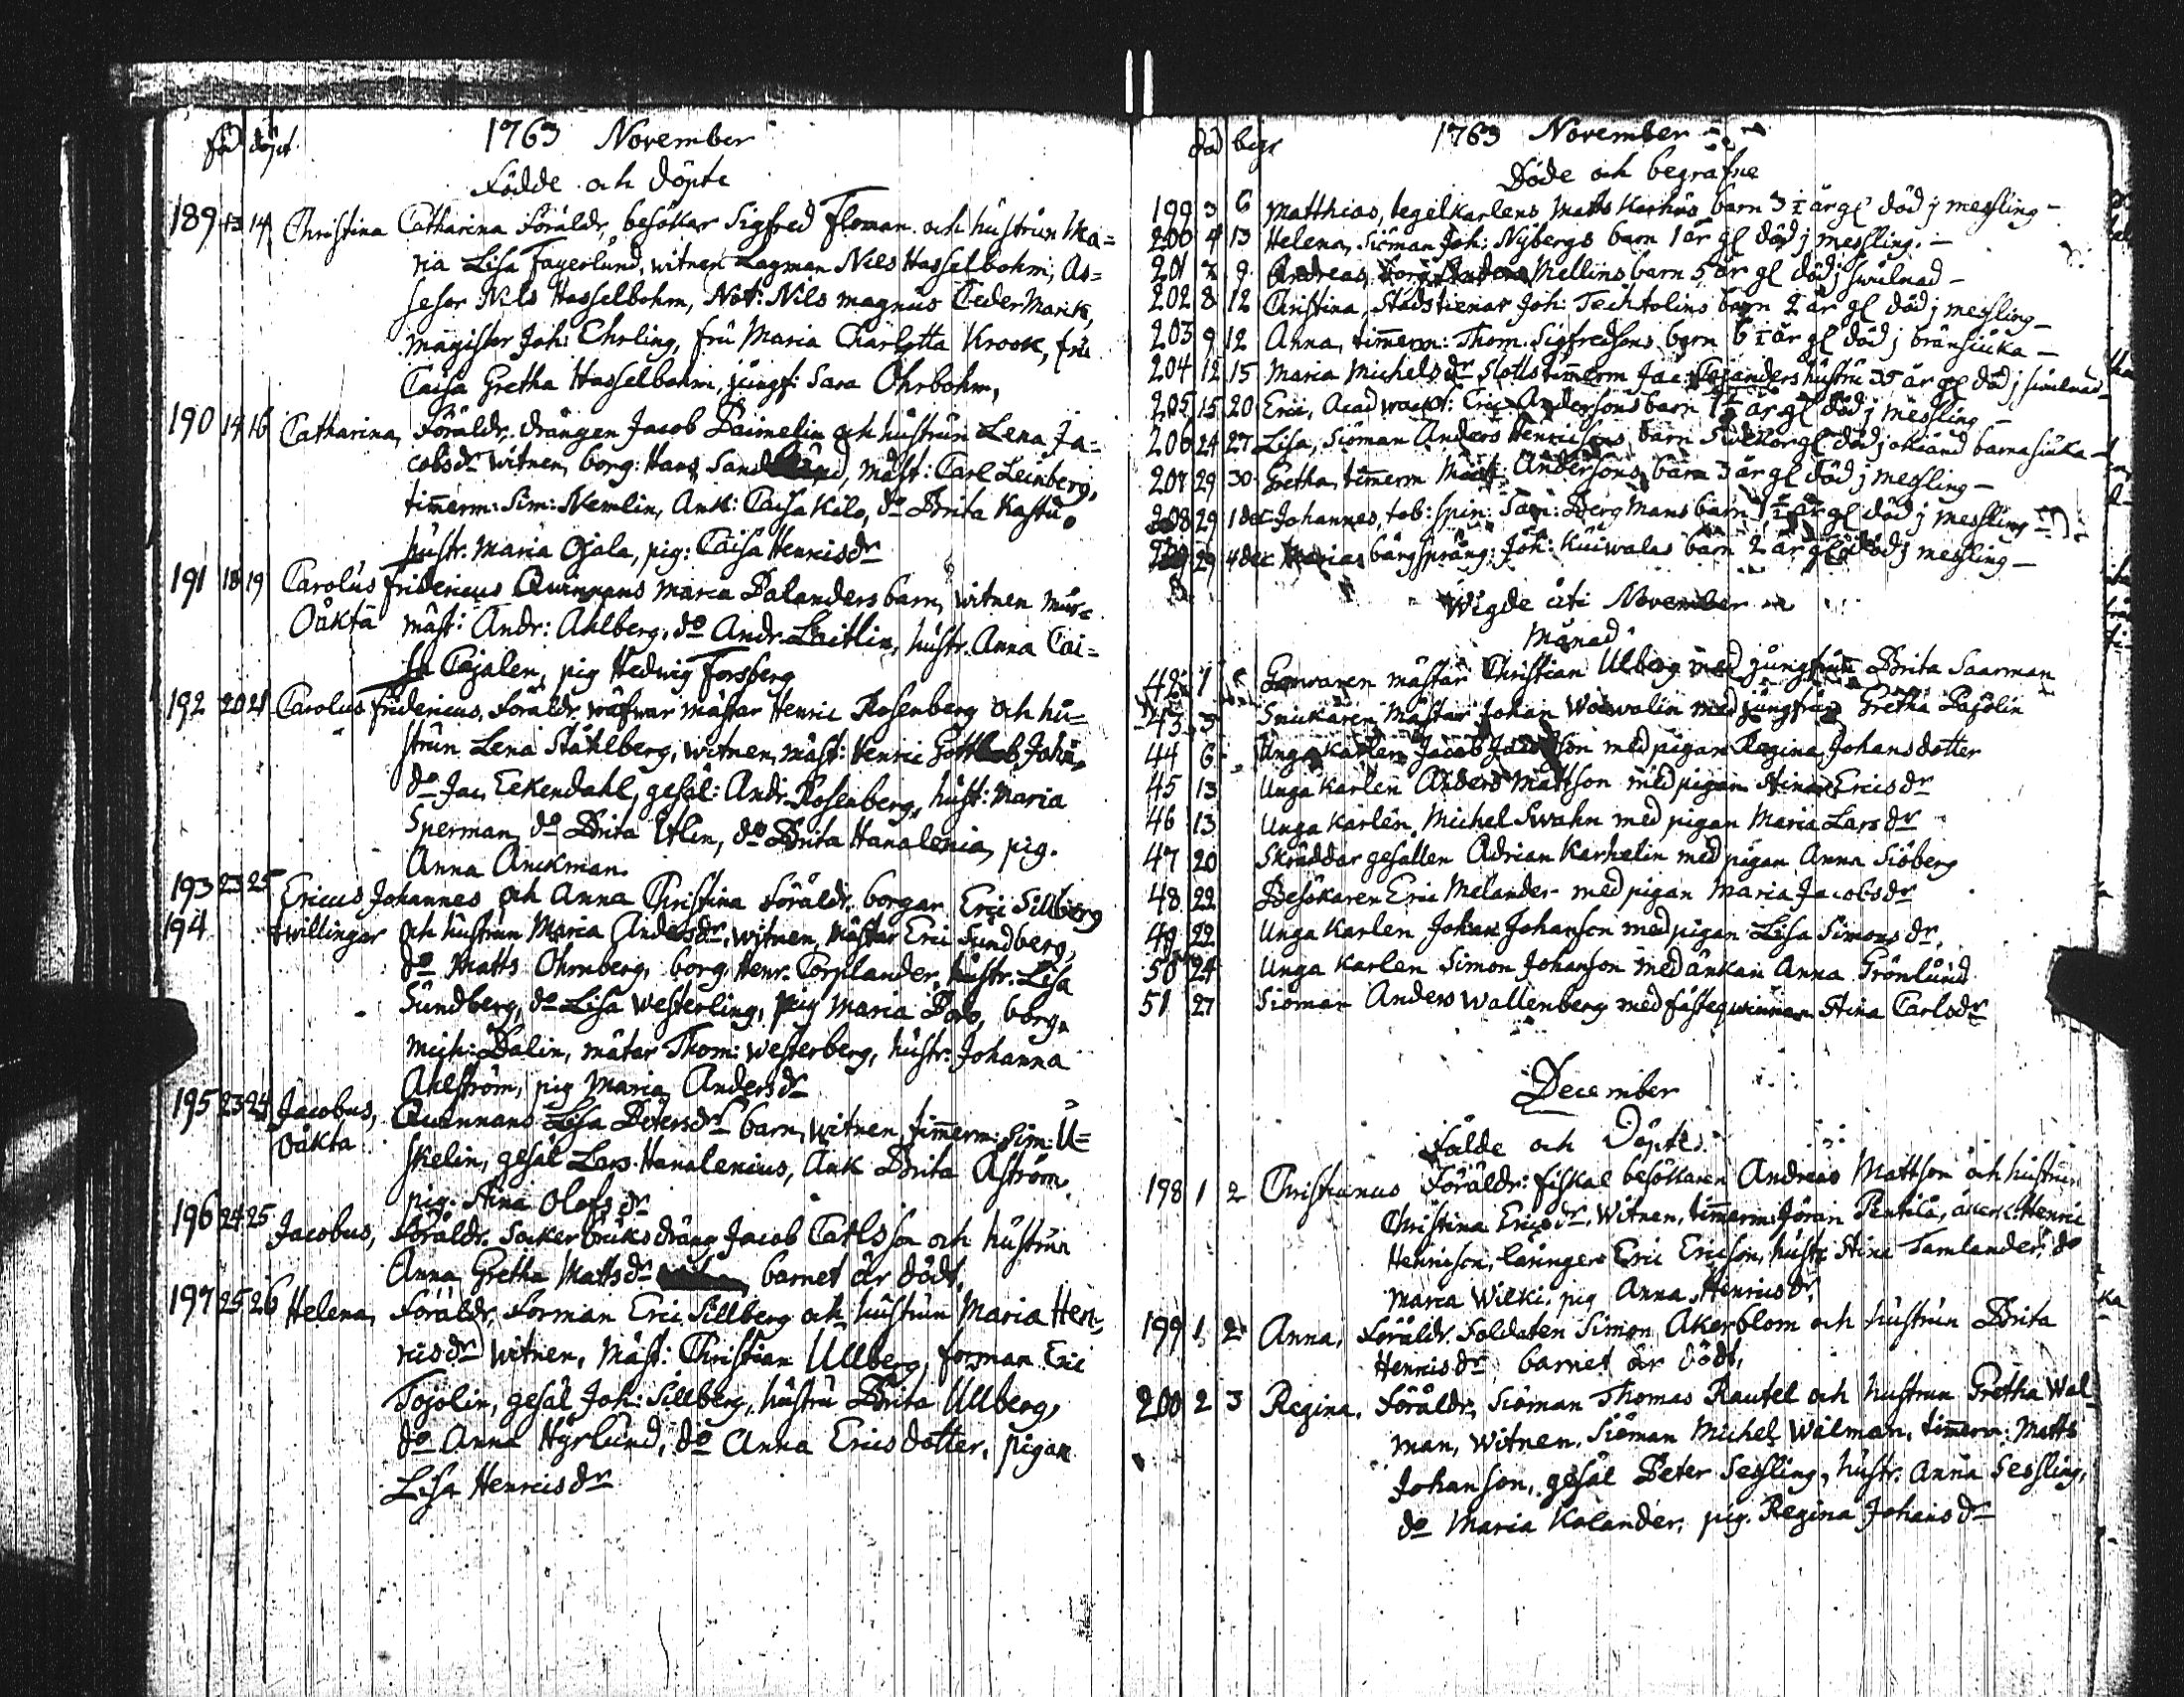 föd döpt. 1763 November
Födde och döpte
189 13 14 Christina Catharina Föräldr, besökar Sigfred Floman och hustrun Ma=
ria Lisa Fagerlund, witnen Lagman Nils Hasselbohm, As=
sesor Nils Hasselbohm, Not: Nils magnus
magister Joh: Ehrling, fru Maria Charlotta Krook, fru
Caisa Gretha Hasselbohm, jungf: Sara Ohrbohm,
190 14 16 Catharina, Föräldr. drängen Jacob Paimelin och hustrun Lena Ja=
cobsdr witnen, borg: Hans mäst: Carl Leinberg,
timmerm: Sim: Nemlin, Ank: Caisa Kilo, do Brita
hustr. Maria Ojala, pig: Caisa Henricsdr
191 18 19 Carolus Fridericus Qwinnans maria Palanders barn, witnen mur=
Oäkta mäst: Andr: Ahlberg, do Andr. Laitlin, hustr. Anna Cai=
sa Cajalen, pig Hedwig Forsberg
192 20 21 Carolus Fridericus, Föräldr, wäfwar mästar Henric Rosenberg och hu=
strun Lena Ståhlberg, witnen, mäst: Henric
do Jac. Eekendahl, gesäl: Andr. Rosenberg, hust: Maria
Sperman, do Brita Etlin, do Brita Hanalenia, pig.
Anna Anckman.
193 23 25 Ericus Johannes och Anna Christina Föräldr. borgar Eric Sillberg
194 twillingar och hustrun Maria Andersdr, witnen, Mästar Eric Sundberg,
do Matts Ohrnberg, borg Henr. Corplander, hustr. Lisa
Sundberg, do Lisa Westerling, pig Maria borg.
Mich: Dalin, mätar Thom: Westerberg, hustr: Johanna
Ahlström, pig Maria Andersdr
195 23 24 Jacobus, Qwinnans Lisa Petersdr barn, witnen, timmerm: Sim: U=
Oäkta skelin, gesäl Lars Hanalenius, Ank Brita Åström,
pig. Stina Olofsdr
196 24 25 Jacobus, Föräldr. Socker bruks dräng Jacob Carlsson och hustrun
Anna Gretha Mattsdr barnet är dödt.
197 25 26 Helena, Föräldr, Forman Eric Sillberg och hustrun Maria Hen=
ricsdr witnen, Mäst: Christian Ullberg, forman Eric
Tojolin, gesäl Joh: Sillberg, hustru Brita Ullberg,
do Anna Hyrlund, do Anna Ericsdotter, pigan
Lisa Henricsdr
död begr 1763 November
Döde och begrafne
199 3 6 Matthias, tegelkarlens Matts Karhus barn 3 1/2 år gl död j messling –
200 4 13 Helena, Siöman Joh: Nybergs barn 1 år gl död j messling. –
201 7 9 Andreas, Mellins barn 5 år gl död j swulnad –
202 8 12 Christina, Stadstienar Joh: Techtolins barn 2 år gl död j messling –
203 9 12 Anna, timmerm: Thom. Sigfredsons barn 6 1/2 år gl död j bränsiuka –
204 12 15 Maria Michelsdr Slotts timmerm Jac hustru 35 år gl död j swulnad
205 15 20 Eric, Acad wackt: Eric Andersons barn 1 1/2 år gl död j messling –
206 24 27 Lisa, Siöman Anders Henricsons barn gl död j okiänd barnasiuka –
207 29 30 Gretha, timmerm Andersons barn 3 år gl död j messling –
208 29 1 dec Johannes, tob: spin: Sam: Bergmans barn 1 1/2 år gl död j messling
29 4 dec bärgspräng: Joh: Kuiwalas barn 2 år gl död j messling –
Wigde uti November
Månad
42 1 Garwaren mästar Christian Ulberg med jungfrun Brita Saarman
43 3 Snickaren Mästar Johan Woiwalin med jungfrun Gretha Pajolin
44 6 Unga Karlen Jacob med pigan Regina Johansdotter
45 13 Unga Karlen Anders Mattson med pigan Stina Ericsdr
46 13 Unga Karlen Michel Swahn med pigan Maria Larsdr
47 20 Skräddar gesällen Adrian Karhelin med pigan Anna Siöberg
48 22 Besökaren Eric Melander med pigan Maria Jacobsdr
49 22 Unga Karlen Johan Johanson med pigan Lisa Simonsdr
50 24 Unga Karlen Simon Johanson med änkan Anna Grönlund
51 27 Siöman Anders Wallenberg med fästeqwinnan Stina Carlsdr
December
Födde och Döpte
198 1 2 Christianus Föräldr: fiskal besökaren Andreas Mattson och hustrun
Christina Ericsdr. Witnen, timmerm: Jöran Pentilä, Henric
Henricson, läringen Eric Ericson, hustr Stina Tamlander, do
Maria Wilki. pig Anna Henricsdr
199 1 2 Anna, Föräldr. Soldaten Simon Åkerblom och hustrun Brita
Henricsdr barnet är dödt.
200 2 3 Regina. Föräldr, Siöman Thomas Rautel och hustrun Gretha Wal
man, witnen. Siöman Michel Wälman, timmerm: Matts
Johanson, gesäl Peter Sessling, hustr. Anna Sessling,
do Maria Kalander, pig. Regina Johansdr